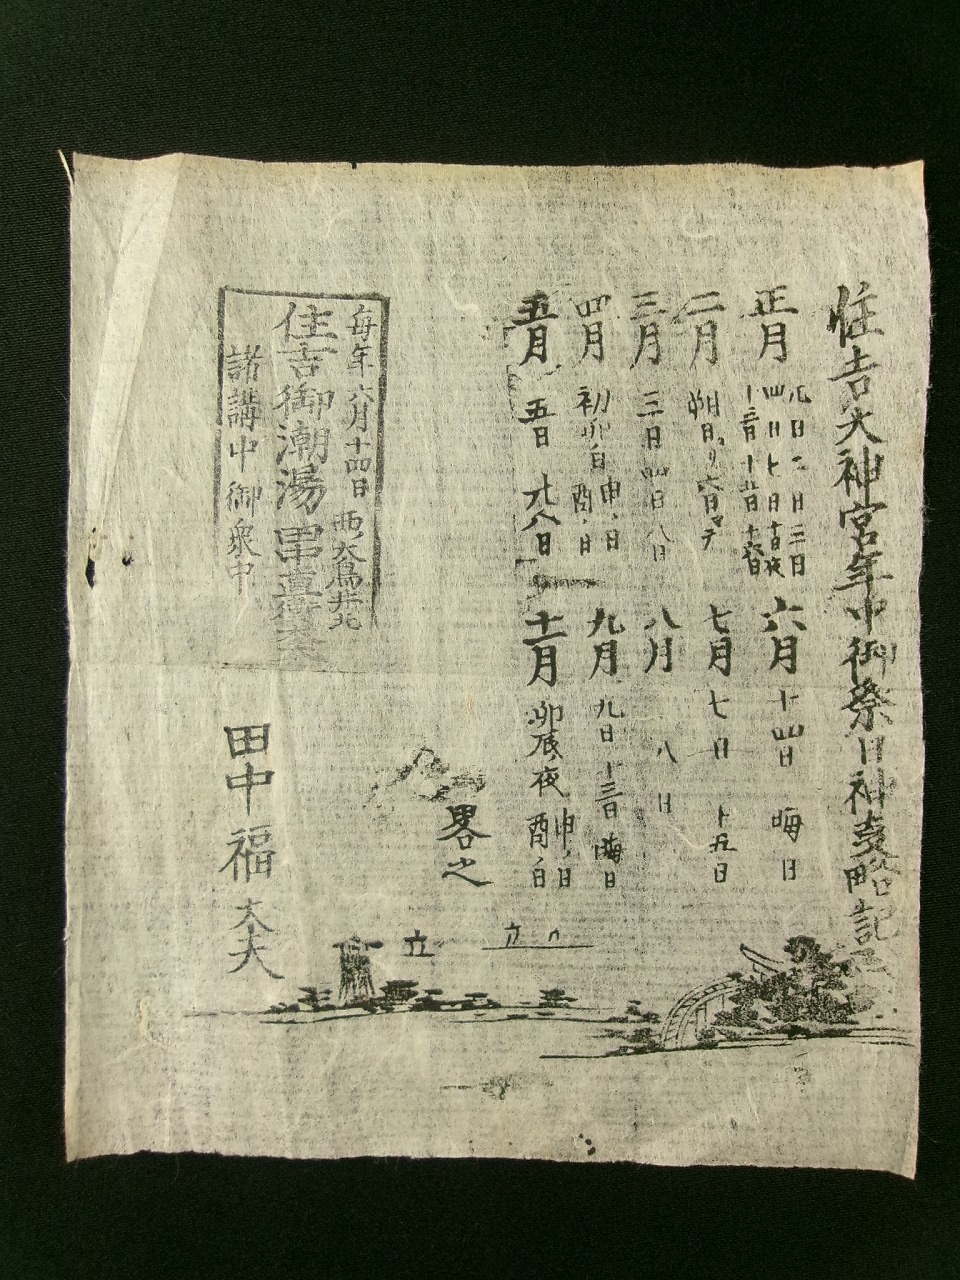 住吉大神宮年中御祭日神事略記
正月 元日二日三日
四日七日十古夜
十三日
二月 朔日ヨリ六日マテ
三月 三日四日八日
四月 初卯ノ日申ノ日
酉ノ日
五月 五日 廿八日
六月 十四日 晦日
七月 七日 十五日
八月 八日
九月 九日十三日晦日
十一月 卯辰夜申ノ日
酉ノ日
畧之
毎年六月十四日 西大鳥井北
住吉御潮湯
諸講中御衆中
田中福太夫